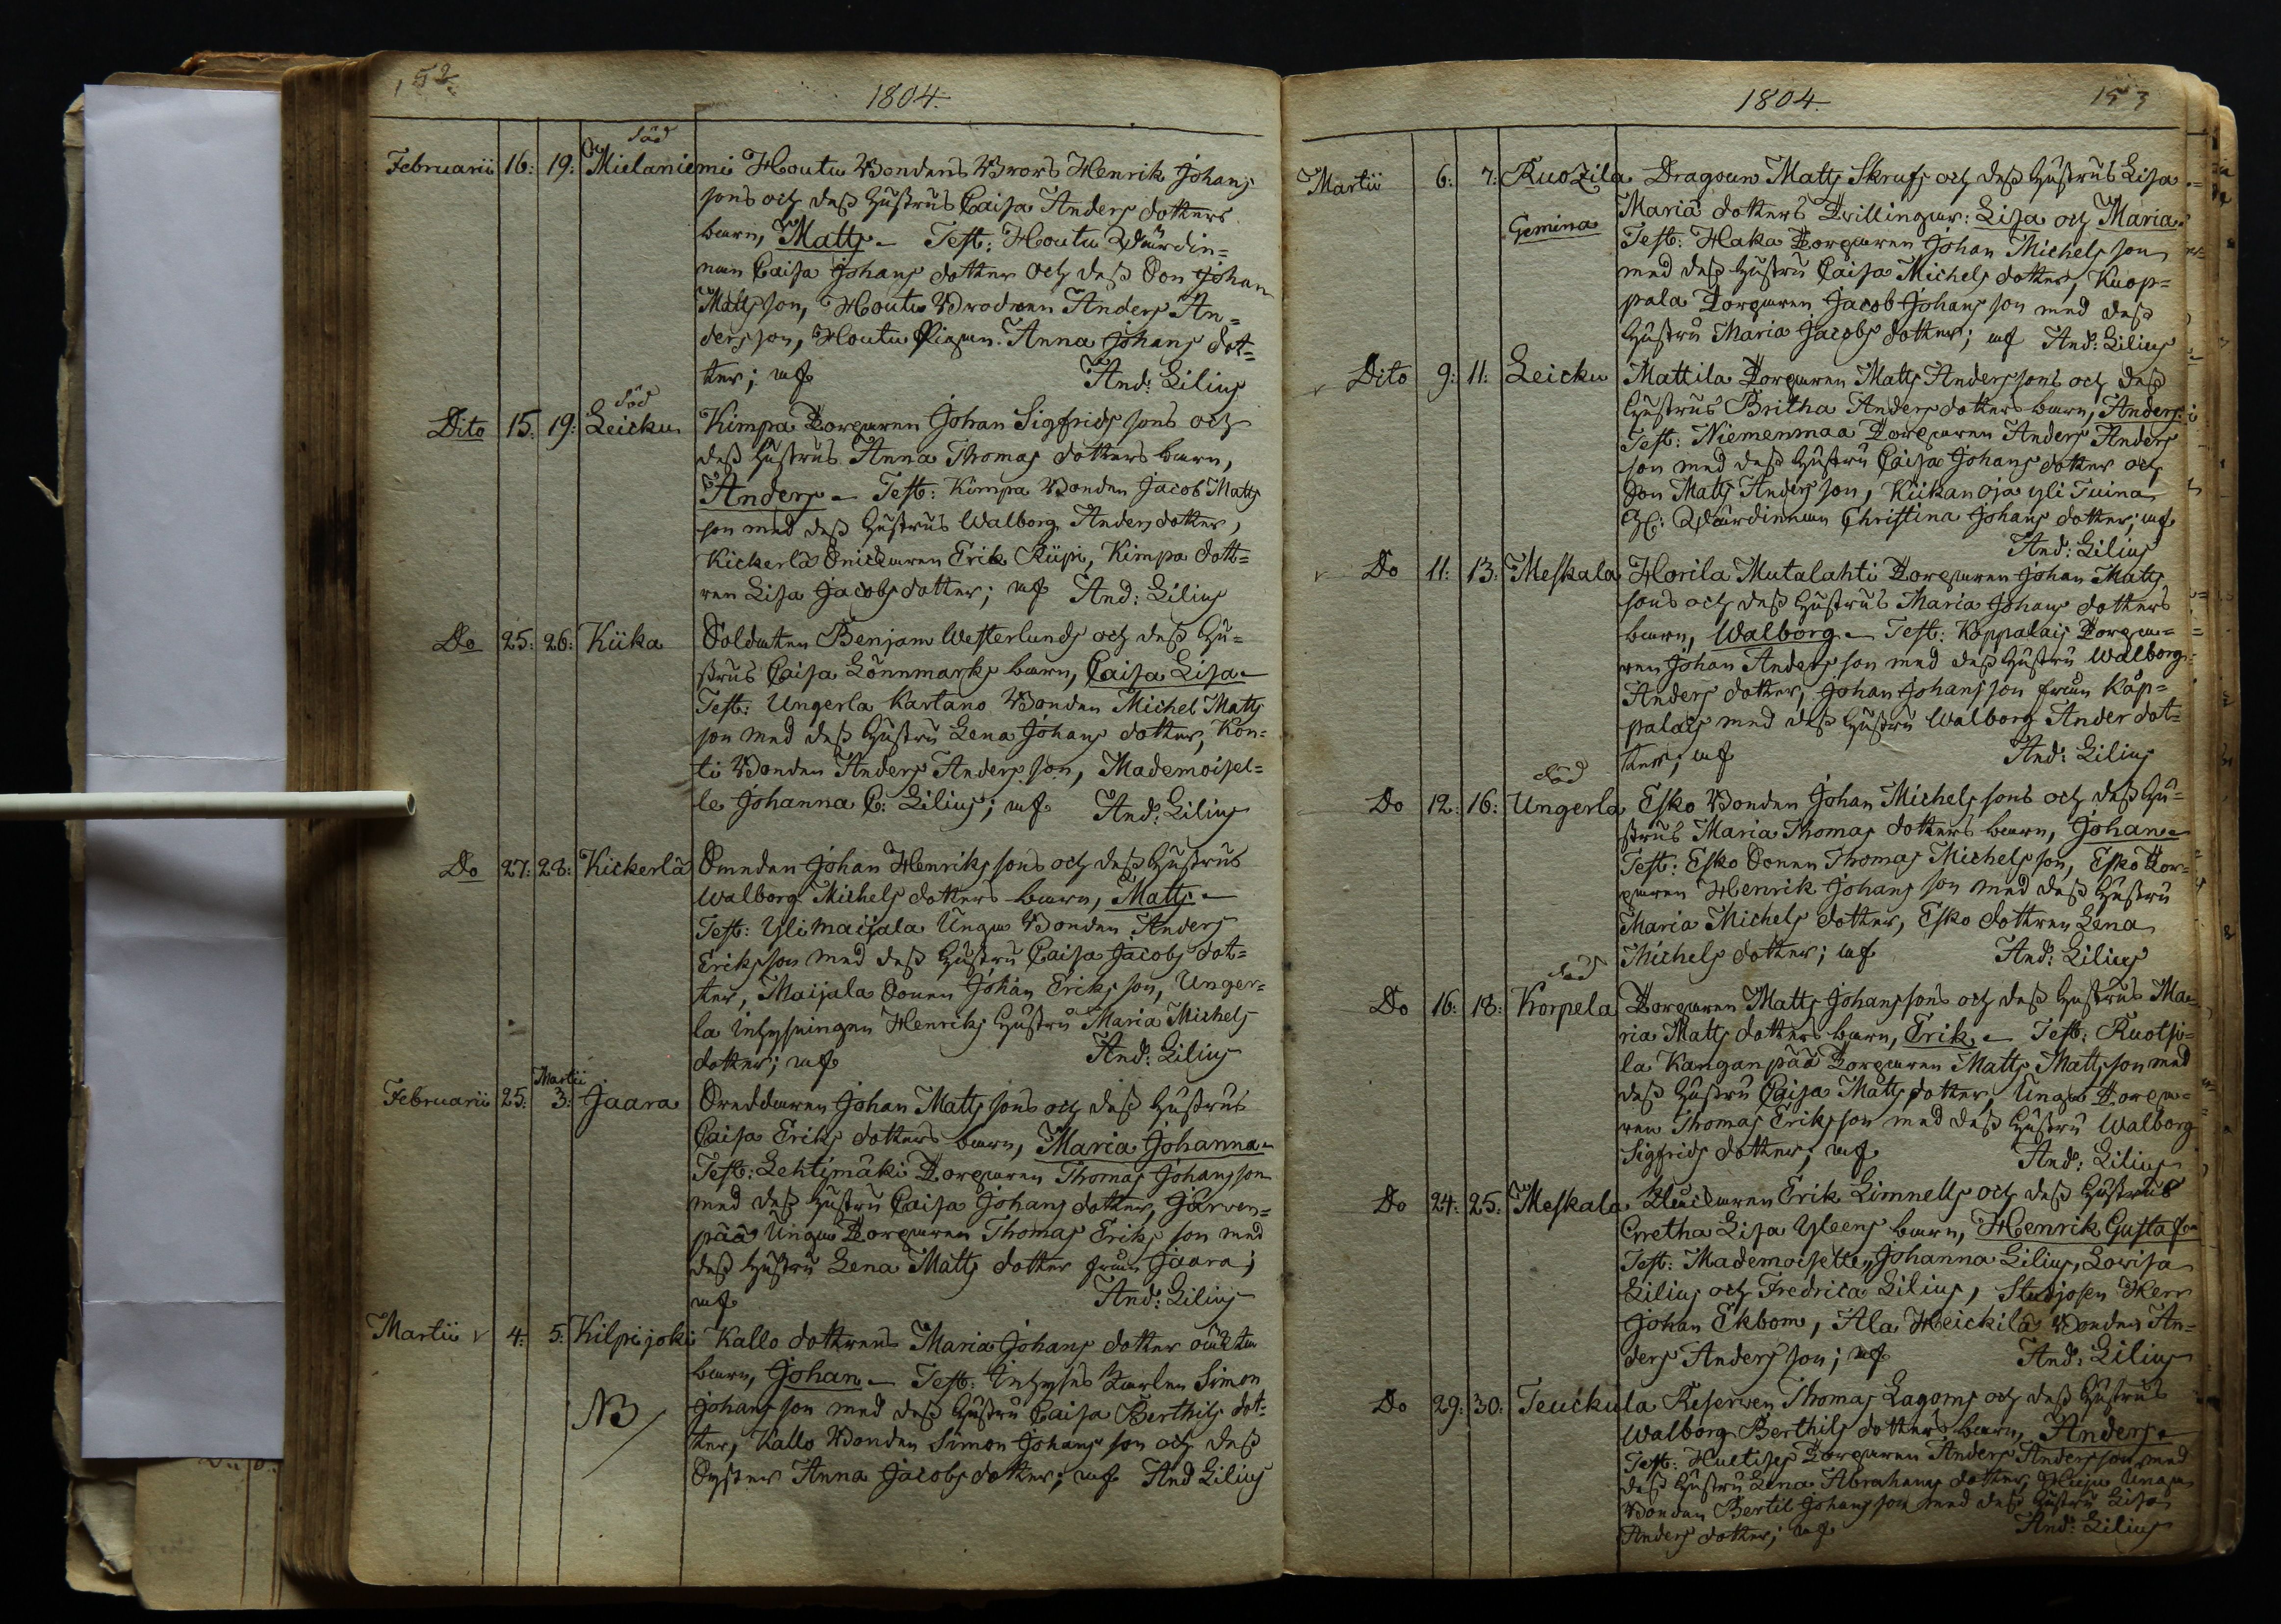 152.
1804.
död
Februarii 16: 19: Mielaniemi Houtu Bondens Brors Henrik Johans
sons och dess hustrus Caisa Anders dotters
barn, Matts. Test: Houtu Wärdin=
nan Caisa Johans dotter och dess Son Johan
Matts son, Houtu Brodren Anders An=
ders son, Houtu Pigan Anna Johans dot=
ter; mf And: Lilius
död
Dito 15: 19: Leicku Kimpa Torparen Johan Sigfrids sons och
dess hustrus Anna Thomas dotters barn,
Anders. Test: Kimpa Bonden Jacob Matts
son med dess hustrus Walborg Anders dotter,
Kickerlä Snickaren Erik Rüpi, Kimpa dott=
ren Lisa Jacobs dotter; mf And: Lilius
Do 25: 26: Kiika Soldaten Benjam Westerlunds och dess hu=
strus Caisa Lönnmarks barn, Caisa Lisa
Test: Ungerla Kartano Bonden Michel Matts
son med dess hustru Lena Johans dotter, Kon=
ti Bonden Anders Anders son, Mademoisel=
le Johanna C: Lilius; mf And: Lilius
Do 27: 28: Kickerlä Smeden Johan Henriks sons och dess hustrus
Walborg Michels dotters barn, Matts
Test: Yli Maijala Unga Bonden Anders
Eriks son med dess hustru Caisa Jacobs dot=
ter, Maijala Sonen Johan Eriks son, Unger=
la inhysningen Henriks hustru Maria Michels
dotter; mf And: Lilius
Martii
Februarii 25: 3: Jaara Skräddaren Johan Matts sons och dess hustrus
Caisa Eriks dotters barn, Maria Johanna
Test: Lehtimäki Torparen Thomas Johans son
med dess hustru Caisa Johans dotter, Järwen=
pää Unga Torparen Thomas Eriks son med
dess hustru Lena Matts dotter från Jaara;
mf And: Lilius
Martii 4: 5: Kilpijoki Kallo dottrens Maria Johans dotter oächta
barn, Johan. Test: Inhyses Karlen Simon
NB Johans son med dess hustru Caisa Berthils dot=
ter, Kallo Bonden Simon Johans son och dess
Syster Anna Jacobs dotter; mf And Lilius
1804.
153
Martii 6: 7: Ruozila Dragoun Matts Skrufs och dess hustrus Lisa
Gemina Maria dotters Twillingar: Lisa och Maria.
Test: Haka Torparen Johan Michels son
med dess hustru Caisa Michels dotter, Knop=
pala Torparen Jacob Johans son med dess
hustru Maria Jacobs dotter; mf And: Lilius
Dito 9: 11: Leicku Mattila Torparen Matts Anders sons och dess
hustrus Britha Anders dotters barn, Anders
Test: Niemenmaa Torparen Anders Anders
son med dess hustru Caisa Johans dotter och
Son Matts Anders son, Kiikanoja yli Tuina
Wärdinnan Christina Johans dotter; mf
And: Lilius
Do 11: 13: Meskala Horila Mutalahti Torparen Johan Matts
sons och dess hustrus Maria Johans dotters
barn, Walborg. Test: Koppalais Torpa=
ren Johan Anders son med dess hustru Walborg
Anders dotter, Johan Johans son från Kop=
palais med dess hustru Walborg Anders dot=
ter; mf And: Lilius
död
Do 12: 16: Ungerla Esko Bonden Johan Michels sons och dess hu=
strus Maria Thomas dotters barn, Johan
Test: Esko Sonen Thomas Michels son, Esko Tor=
paren Henrik Johans son med dess hustru
Maria Michels dotter, Esko dottren Lena
Michels dotter; mf And: Lilius
död
Do 16: 18: Korpela Torparen Matts Johans sons och dess hustrus Ma=
ria Matts dotters barn, Erik. Test: Ruotsi=
la Kanganpää Torparen Matts Matts son med
dess hustru Caisa Matts dotter, Unga Torpa=
ren Thomas Eriks son med dess hustru Walborg
Sigfrids dotter; mf And: Lilius
Do 24: 25: Meskala Klockaren Erik Limnells och dess hustrus
Gretha Lisa Yleens barn, Henrik Gustaf
Test: Mademoiselle, Johanna Lilius, Lowisa
Lilius och Fredrica Lilius, Studiosen Herr
Johan Ekbom, Ala Heickilä Bonden An=
ders Anders son; mf And: Lilius
Do 29: 30: Teuckula Reserven Thomas Lagoms och dess hustrus
Walborg Berthils dotters barn, Anders
Test: Huttis Torparen Anders Anders son med
dess hustru Lena Abrahams dotter, Heiju Unga
Bonden Bertil Johans son med dess hustru Lisa
Anders dotter; mf And: Lilius